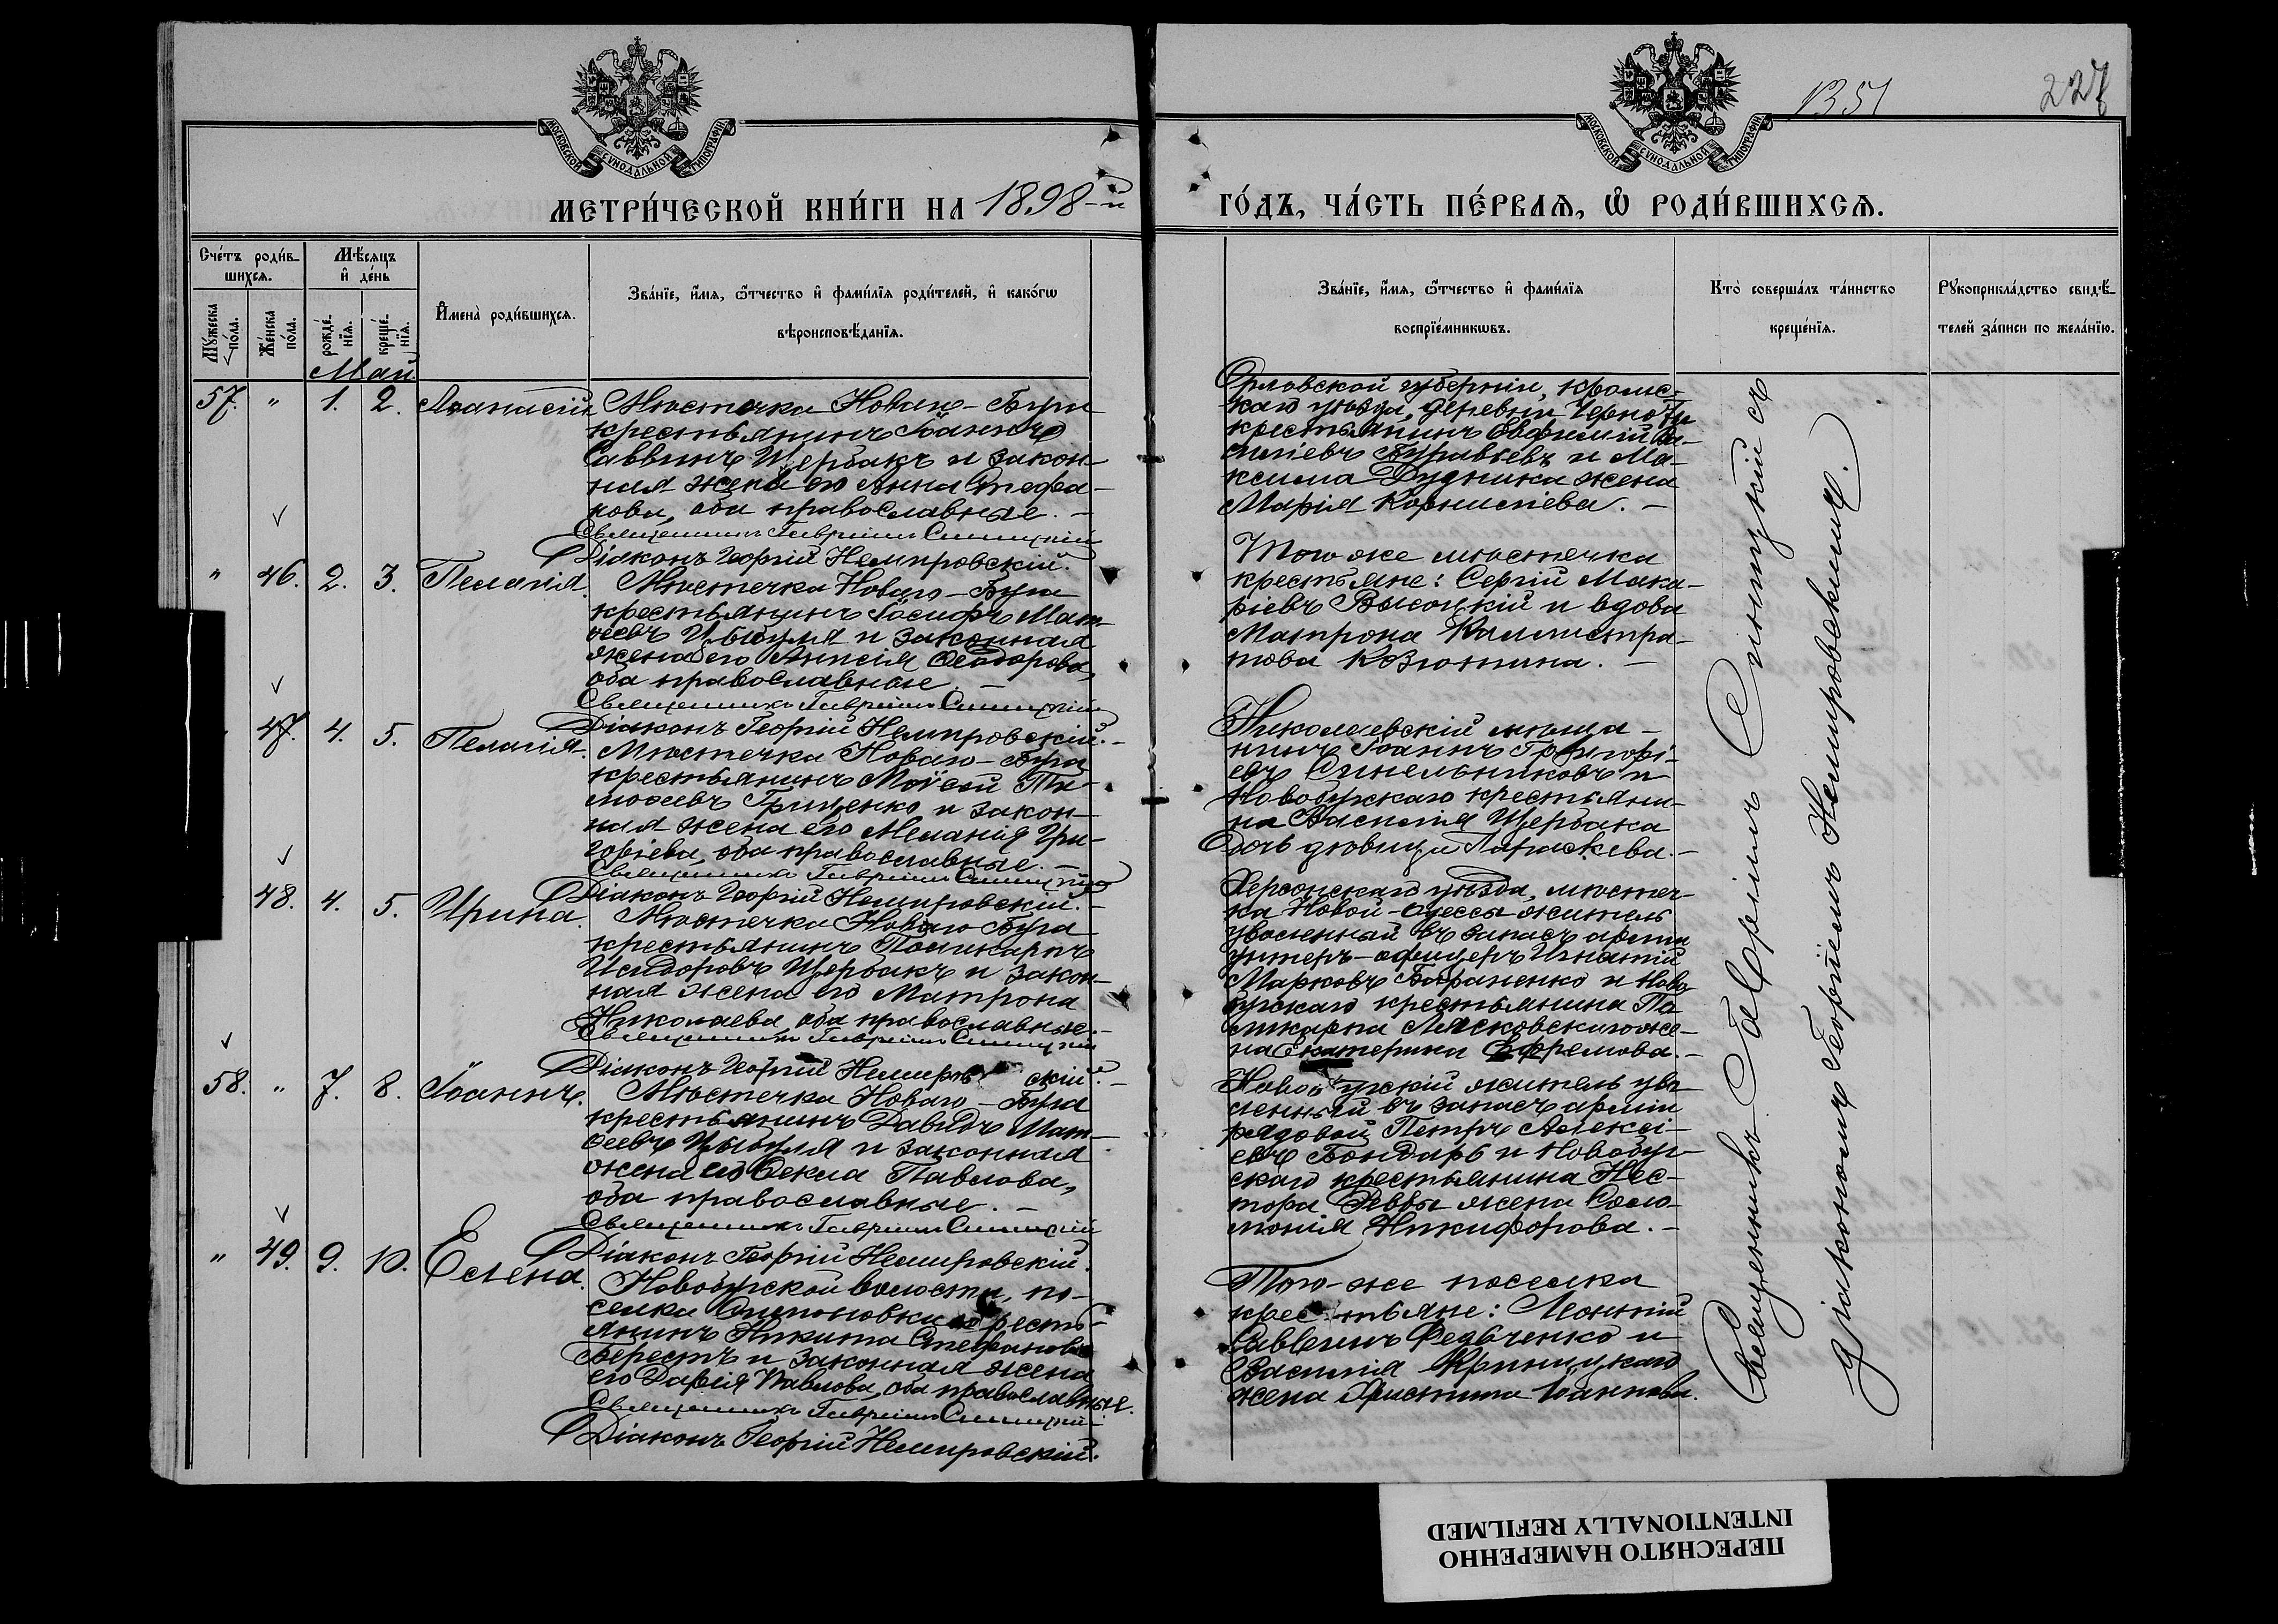 1351
227
МОСКОВСКОЙ СУНОДАЛЬНОЙ ТИПОГРАФІИ
МОСКОВСКОЙ СУНОДАЛЬНОЙ ТИПОГРАФІИ
МЕТРИ́ЧЕСКОЙ КНИ́ГИ НА 1898-й
ГО́ДЪ, ЧА́СТЬ ПЕ́РВАѦ, Ѡ РОДИ́ВШИХСѦ.
Сче́тъ роди́в-
шихсѧ.
Мꙋ́жеска по́ла.
Же́нска по́ла.
Мѣ́сѧцъ и де́нь
рожде́-нїѧ.
креще́-нїѧ.
И҆мена̀ роди́вшихсѧ.
Зва́нїе, и҆́мѧ, ѻ҆́тчество и҆ фами́лїѧ роди́телей, и҆ како́гѡ
вѣроисповѣ́данїѧ.
Зва́нїе, и҆́мѧ, ѻ҆́тчество и҆ фами́лїѧ
воспрїе́мникѡвъ.
Кто̀ соверша́лъ та́инство
креще́нїѧ.
Рꙋкоприкла́дство свидѣ́-
телей за́писи по жела́нїю.
Май
57. " 1. 2. Аѳанасій
Мѣстечка Новаго-Буга
крестьянинъ Іоаннъ
Саввинъ Щербакъ и закон-
ная жена его Анна Стефа-
нова, оба православные. -
Священникъ Гавріилъ Синицкій
Діаконъ Георгій Немировскій.
Орловской губерніи, кромс-
каго уѣзда, деревни
крестьянинъ Евфимій Ва-
силіевъ Буравлевъ и Ма-
ксима Рудника жена
Марія Корнилiева. -
" 46. 2. 3. Пелагія.
Мѣстечка Новаго-Буга
крестьянинъ Іосифъ Мат-
ѳеевъ Цыбуля и законная
жена его Анисія Ѳеодорова,
оба православные. -
Священникъ Гавріилъ Синицкій
Діаконъ Георгій Немировскій. -
Того же мѣстечка
крестьяне: Сергій Мака-
ріевъ Высоцкій и вдова
Матрона Каллистра-
това Козютина. -
47. 4. 5. Пелагія.
Мѣстечка Новаго-Буга
крестьянинъ Моѵсей Ти-
моѳеевъ Грищенко и закон-
ная жена его Меланія Гри-
горіева, оба православные. -
Священникъ Гавріилъ Синицкій
Діаконъ Георгій Немировскій. -
Николаевскій мѣща-
нинъ Іоаннъ Григорі-
евъ Синельниковъ и
Новобугскаго крестьяни-
на Василія Щербака
дочь дѣвица Параскева. -
48. 4. 5. Ирина.
Мѣстечка Новаго Буга
крестьянинъ Поликарпъ
Исидоровъ Щербакъ и закон-
ная жена его Матрона
Николаева, оба православные. -
Священникъ Гавріилъ Синицкій
Діаконъ Георгій Немировскій. -
Херсонскаго уѣзда, мѣстеч-
ка Новой-Одессы житель
уволенный въ запасъ арміи
унтеръ-офицеръ Игнатій
Марковъ Бафаненко и Ново-
бугскаго крестьянина По-
ликарпа Лясковскаго же-
на Екатерина Ефремова. -
58. " 7. 8. Іоаннъ.
Мѣстечка Новаго-Буга
крестьянинъ Давидъ Мат-
ѳеевъ Цыбуля и законная
жена его Ѳекла Павлова,
оба православные. -
Священникъ Гавріилъ Синицкій
Діаконъ Георгій Немировскій.
Новобугскій житель уво-
ленный въ запасъ арміи
рядовой Петръ Алексі-
евъ Бондарь и Новобуг-
скаго крестьянина Нес-
тора Реввы жена Соло-
монія Никифорова. -
" 49. 9. 10. Елена.
Новобугской волости, по-
селка Антоновки кресть-
янинъ Никита Стефановъ
Берестъ и законная жена
его Дарія Павлова, оба православные.
Священникъ Гавріилъ Синицкій
Діаконъ Георгій Немировскій.
Того-же поселка
крестьяне: Леонтій
Саввинъ Федьченко и
Василія Криницкаго
жена Христина Іоаннова.
Священникъ Гавріилъ Синицкій съ
діакономъ Георгіемъ Немировскимъ.
ПЕРЕСНЯТО НАМЕРЕННО
INTENTIONALLY REFILMED